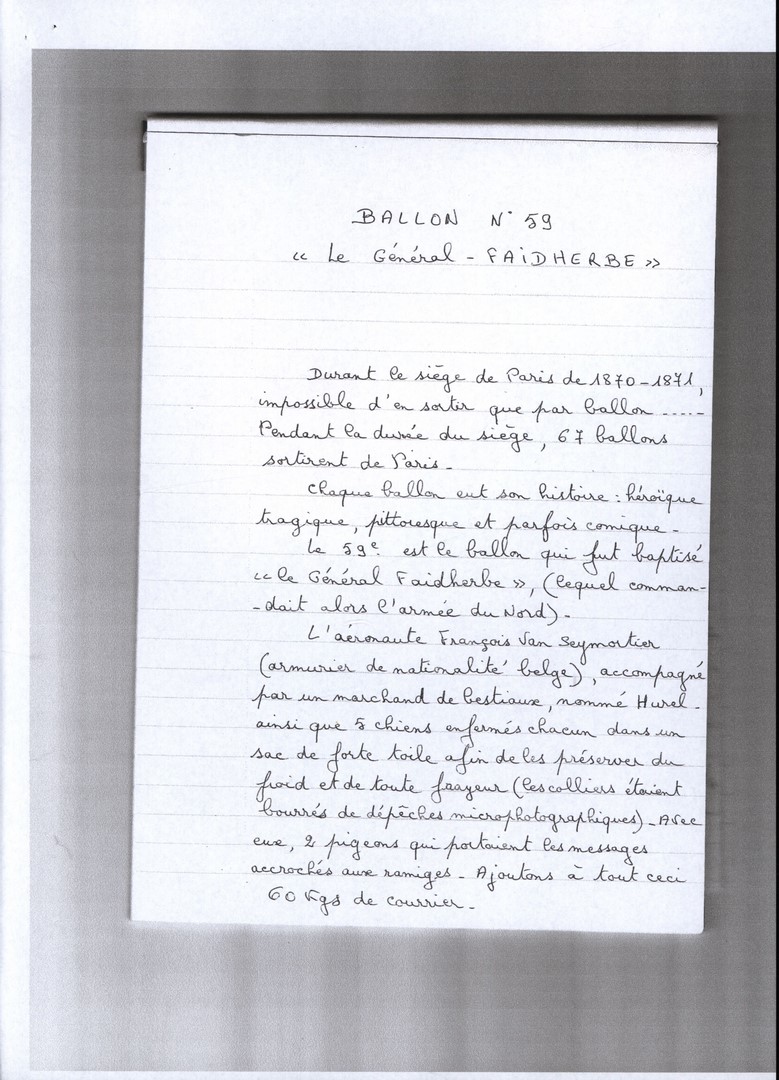 BALLON N° 59
« Le Général - FAIDHERBE »
Durant le siège de Paris de 1870-1871,
impossible d'en sortir que par ballon .....-
Pendant la durée du siège, 67 ballons
sortirent de Paris.
Chaque ballon eut son histoire : héroïque
tragique, pittoresque et parfois comique.
Le 59e est le ballon qui fut baptisé
« le Général Faidherbe », (lequel comman-
-dait alors l'armée du Nord).
L'aéronaute François Van Seymortier
(armurier de nationalité belge), accompagné
par un marchand de bestiaux, nommé Hurel.
ainsi que 5 chiens enfermés chacun dans un
sac de forte toile afin de les préserver du
froid et de toute frayeur (les colliers étaient
bourrés de dépêches microphotographiques) - Avec
eux, 2 pigeons qui portaient les messages
accrochés aux ramiges - Ajoutons à tout ceci
60 Kgs de courrier.